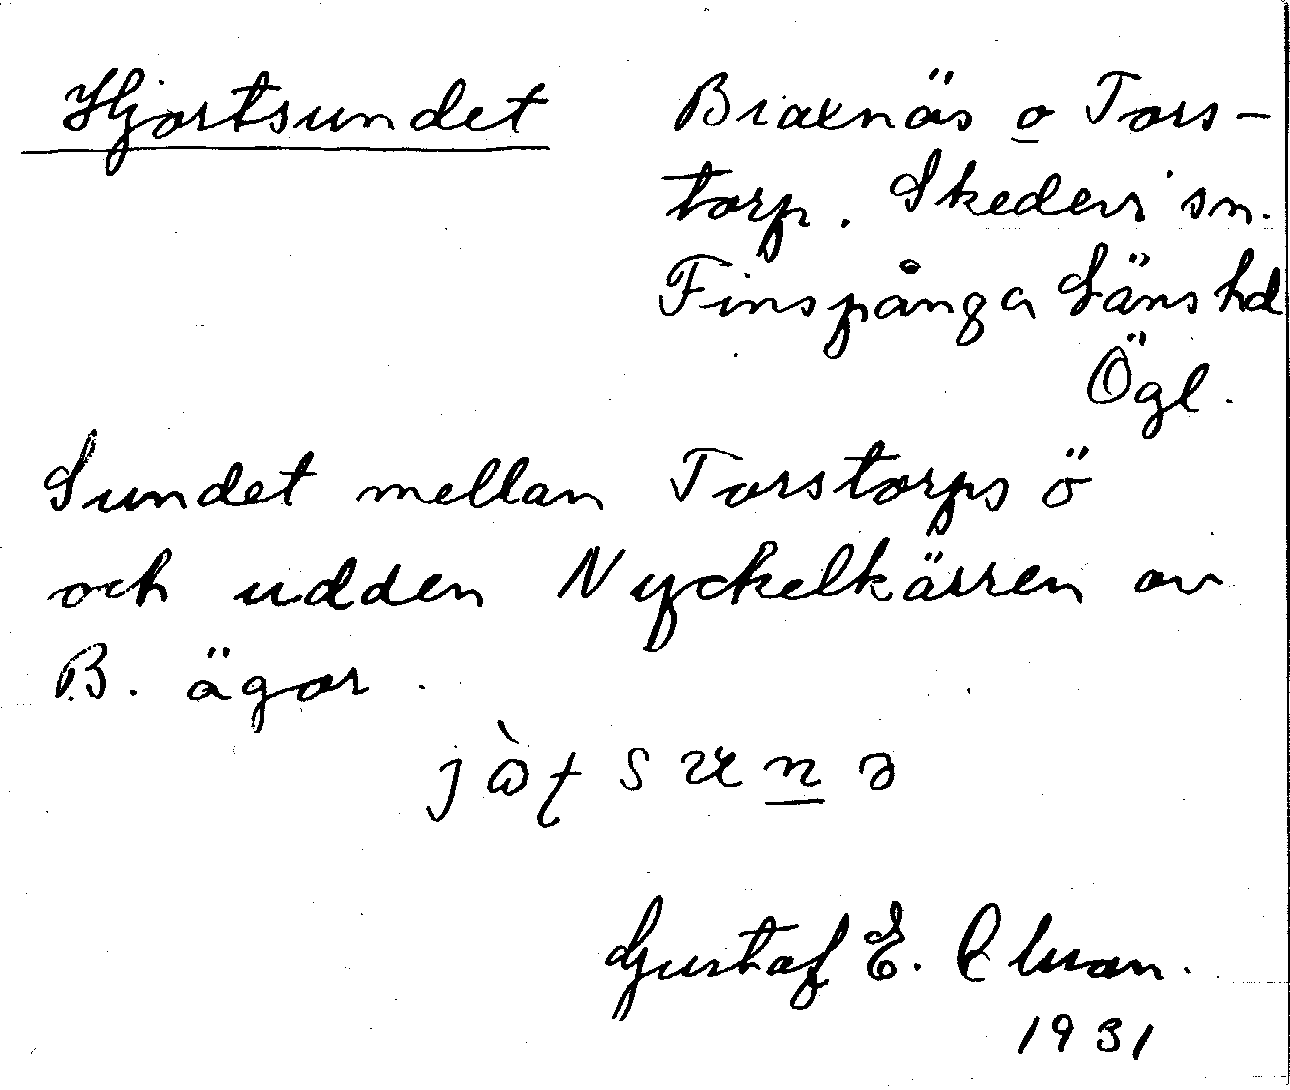 Hjortsundet Biaxnäs o Tors-
torp. Skedevi sn.
Finspånga Läns hd
Ögl.
Sundet mellan Torstorps ö
och udden Nyckelkärren av
B. ägor.
Gustaf E.
1931